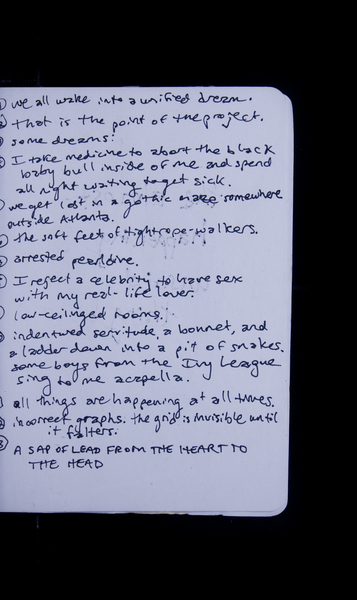 we all wake into a unified dream.
that is the point of the project.
some dreams:
I take medicine to abort the black
baby bull inside of me and spend
all night waiting to get sick.
we get lost in a gothic maze somewhere
outside Atlanta.
the soft feet of tightrope-walkers.
arrested pearldive.
I reject a celebrity to have sex
with my real-life lover.
low-ceilinged rooms.
indentured servitude, a bonnet, and
a ladder down into a pit of snakes.
some boys from the Ivy League
sing to me acapella.
all things are happening at all times.
incorrect graphs. the grid is invisible until
it falters.
A SAP OF LEAD FROM THE HEART TO
THE HEAD